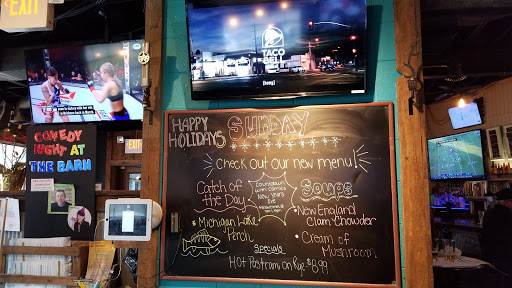 EXIT
TACO
BELL
[song]
COMEDY
NIGHT AT
THE BARN
EXIT
HAPPY
HOLIDAYS
SUNDAY
Check out our new menu!
Catch of
the Day
Michigan Lake
Perch
New Years
Eve
Soups
New England
Clam Chowder
Cream of
Mushroom
Specials
Hot Pastrami on Rye $8.99